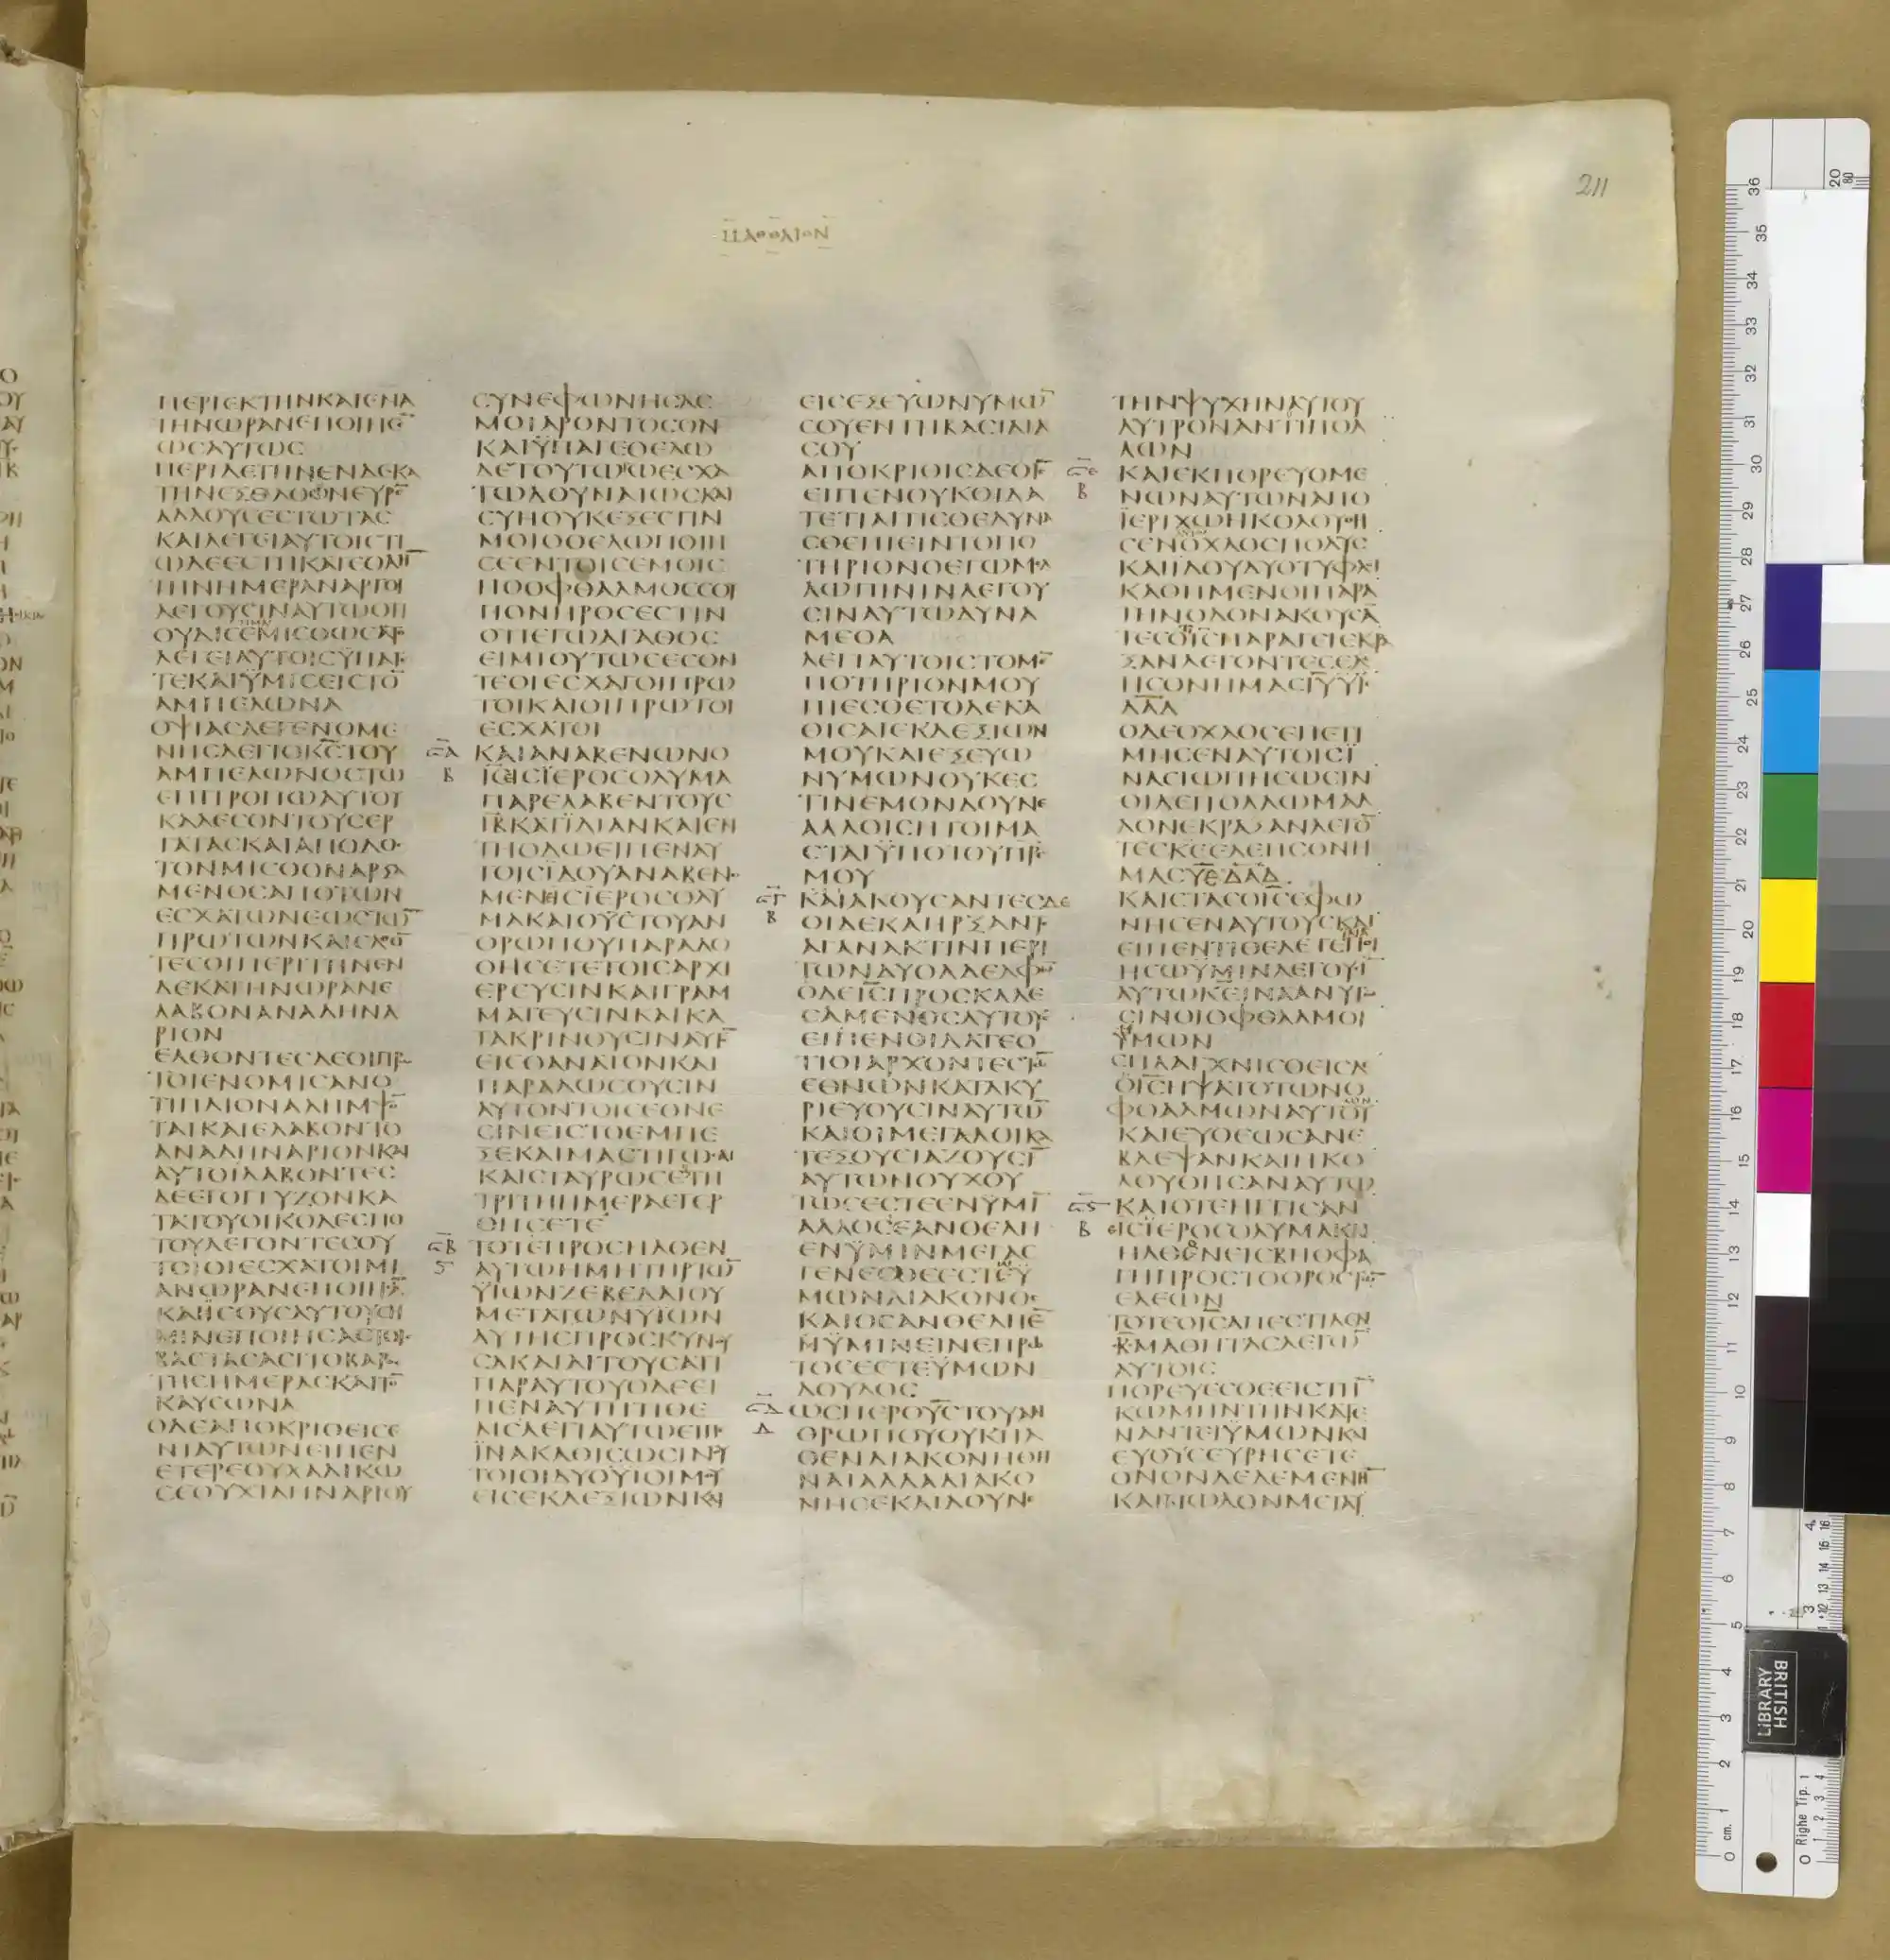 211
ΜΑΘΘΑΙΟΝ
ΠΕΡΙΕΚΤΗΝΚΑΙΕΝΑ
ΤΗΝΩΡΑΝΕΠΟΙΗϹΕ̅
ΩϹΑΥΤΩϹ
ΠΕΡΙΔΕΤΗΝΕΝΔΕΚΑ
ΤΗΝΕΞΕΛΘΩΝΕΥΡΕ̅
ΑΛΛΟΥϹΕϹΤΩΤΑϹ
ΚΑΙΛΕΓΕΙΑΥΤΟΙϹΤΙ
ΩΔΕΕϹΤΗΚΑΤΕΟΛΗ̅
ΤΗΝΗΜΕΡΑΝΑΡΓΟΙ
ΛΕΓΟΥϹΙΝΑΥΤΩΟΤΙ
ΟΥΔΙϹΕΜΙϹΘΩϹΑΤΟ
ΛΕΓΕΙΑΥΤΟΙϹΫΠΑΓΕ
ΤΕΚΑΙΫΜΙϹΕΙϹΤΟ̅
ΑΜΠΕΛΩΝΑ
ΟΨΙΑϹΔΕΓΕΝΟΜΕ
ΝΗϹΛΕΓΙΟΚ̅Ϲ̅ΤΟΥ
ΑΜΠΕΛΩΝΟϹΤΩ
ΕΠΙΤΡΟΠΩΑΥΤΟΥ
ΚΑΛΕϹΟΝΤΟΥϹΕΡ
ΓΑΤΑϹΚΑΙΑΠΟΔΟϹ
ΤΟΝΜΙϹΘΟΝΑΡΞΑ
ΜΕΝΟϹΑΠΟΤΩΝ
ΕϹΧΑΤΩΝΕΩϹΤΩ̅
ΠΡΩΤΩΝΚΑΙΕΛΘΟ̅
ΤΕϹΟΙΠΕΡΙΤΗΝΕΝ
ΔΕΚΑΤΗΝΩΡΑΝΕ
ΛΑΒΟΝΑΝΑΔΗΝΑ
ΡΙΟΝ
ΕΛΘΟΝΤΕϹΔΕΟΙΠΡΩ
ΤΟΙΕΝΟΜΙϹΑΝΟ
ΤΙΠΛΙΟΝΑΛΗΜΨΟ̅
ΤΑΙΚΑΙΕΛΑΒΟΝΤΟ
ΑΝΑΔΗΝΑΡΙΟΝΚΑΙ
ΑΥΤΟΙΛΑΒΟΝΤΕϹ
ΔΕΕΓΟΓΓΥΖΟΝΚΑ
ΤΑΤΟΥΟΙΚΟΔΕϹΠΟ
ΤΟΥΛΕΓΟΝΤΕϹΟΥ
ΤΟΙΟΙΕϹΧΑΤΟΙΜΙ
ΑΝΩΡΑΝΕΠΟΙΗϹΑ̅
ΚΑΙΪϹΟΥϹΑΥΤΟΥϹΗ
ΜΙΝΕΠΟΙΗϹΑϹΤΟΙϹ
ΒΑϹΤΑϹΑϹΙΤΟΒΑΡΟϹ
ΤΗϹΗΜΕΡΑϹΚΑΙΤΟ̅
ΚΑΥϹΩΝΑ
ΟΔΕΑΠΟΚΡΙΘΕΙϹΕ
ΝΙΑΥΤΩΝΕΙΠΕΝ
ΕΤΕΡΕΟΥΚΑΔΙΚΩ
ϹΕΟΥΧΙΔΗΝΑΡΙΟΥ
ϹΥΝΕΦΩΝΗϹΑϹ
ΜΟΙΑΡΟΝΤΟϹΟΝ
ΚΑΙΫΠΑΓΕΘΕΛΩ
ΔΕΤΟΥΤΩΤΩΕϹΧΑ
ΤΩΔΟΥΝΑΙΩϹΚΑΙ
ϹΥΗΟΥΚΕΞΕϹΤΙΝ
ΜΟΙΟΘΕΛΩΠΟΙΗ
ϹΕΕΝΤΟΙϹΕΜΟΙϹ
ΗΟΟΦΘΑΛΜΟϹϹΟΥ
ΠΟΝΗΡΟϹΕϹΤΙΝ
ΟΤΙΕΓΩΑΓΑΘΟϹ
ΕΙΜΙΟΥΤΩϹΕϹΟΝ
ΤΕΟΙΕϹΧΑΤΟΙΠΡΩ
ΤΟΙΚΑΙΟΙΠΡΩΤΟΙ
ΕϹΧΑΤΟΙ
Ϲ̅Α ΚΑΙΑΝΑΒΕΝΩΝΟ
Β Ι̅Ϲ̅ΕΙϹΪΕΡΟϹΟΛΥΜΑ
ΠΑΡΕΛΑΒΕΝΤΟΥϹ
Ι̅Β̅ΚΑΤΪΔΙΑΝΚΑΙΕΝ
ΤΗΟΔΩΕΙΠΕΝΑΥ
ΤΟΙϹΪΔΟΥΑΝΑΒΕΝΟ
ΜΕΝΕΙϹΪΕΡΟϹΟΛΥ
ΜΑΚΑΙΟΫ̅Ϲ̅ΤΟΥΑΝ
ΘΡΩΠΟΥΠΑΡΑΔΟ
ΘΗϹΕΤΕΤΟΙϹΑΡΧΙ
ΕΡΕΥϹΙΝΚΑΙΓΡΑΜ
ΜΑΤΕΥϹΙΝΚΑΙΚΑ
ΤΑΚΡΙΝΟΥϹΙΝΑΥΤΟ̅
ΕΙϹΘΑΝΑΤΟΝΚΑΙ
ΠΑΡΑΔΩϹΟΥϹΙΝ
ΑΥΤΟΝΤΟΙϹΕΘΝΕ
ϹΙΝΕΙϹΤΟΕΜΠΕ
ΞΕΚΑΙΜΑϹΤΙΓΩϹΑΙ
ΚΑΙϹΤΑΥΡΩϹΕΤΗ
ΤΡΙΤΗΗΜΕΡΑΕΓΕΡ
ΘΗϹΕΤΕ
Ϲ̅Β ΤΟΤΕΠΡΟϹΗΛΘΕΝ
Ϛ ΑΥΤΩΗΜΗΤΗΡΤΩ̅
ΫΙΩΝΖΕΒΕΔΑΙΟΥ
ΜΕΤΑΤΩΝΥΙΩΝ
ΑΥΤΗϹΠΡΟϹΚΥΝΟΥ
ϹΑΚΑΙΑΙΤΟΥϹΑΤΙ
ΠΑΡΑΥΤΟΥΟΔΕΕΙ
ΠΕΝΑΥΤΗΤΙΘΕ
ΛΙϹΛΕΓΙΑΥΤΩΕΙΠΕ
ΪΝΑΚΑΘΙϹΩϹΙΝΟΥ
ΤΟΙΟΙΔΥΟΥΙΟΙΜΟΥ
ΕΙϹΕΚΔΕΞΙΩΝΚΑΙ
ΕΙϹΕΞΕΥΩΝΥΜΩ̅
ϹΟΥΕΝΤΗΒΑϹΙΛΙΑ
ϹΟΥ
ΑΠΟΚΡΙΘΙϹΔΕΟΙ̅Ϲ̅
ΕΙΠΕΝΟΥΚΟΙΔΑ
ΤΕΤΙΑΙΤΙϹΘΕΔΥΝΑ
ϹΘΕΠΙΕΙΝΤΟΠΟ
ΤΗΡΙΟΝΟΕΓΩΜΕΛ
ΛΩΠΙΝΙΝΛΕΓΟΥ
ϹΙΝΑΥΤΩΔΥΝΑ
ΜΕΘΑ
ΛΕΓΙΑΥΤΟΙϹΤΟΜΕ̅
ΠΟΤΗΡΙΟΝΜΟΥ
ΠΙΕϹΘΕΤΟΔΕΚΑ
ΘΙϹΑΙΕΚΔΕΞΙΩΝ
ΜΟΥΚΑΙΕΞΕΥΩ
ΝΥΜΩΝΟΥΚΕϹ
ΤΙΝΕΜΟΝΔΟΥΝΕ
ΑΛΛΟΙϹΗΤΟΙΜΑ
ϹΤΑΙΫΠΟΤΟΥΠ̅Ρ̅Ϲ̅
ΜΟΥ
Ϲ̅Γ ΚΑΙΑΚΟΥϹΑΝΤΕϹΔΕ
Β ΟΙΔΕΚΑΗΡΞΑΝΤΟ
ΑΓΑΝΑΚΤΙΝΠΕΡΙ
ΤΩΝΔΥΟΑΔΕΛΦΩ̅
ΟΔΕΙ̅Ϲ̅ΠΡΟϹΚΑΛΕ
ϹΑΜΕΝΟϹΑΥΤΟΥϹ
ΕΙΠΕΝΟΙΔΑΤΕΟ
ΤΙΟΙΑΡΧΟΝΤΕϹΤΩ̅
ΕΘΝΩΝΚΑΤΑΚΥ
ΡΙΕΥΟΥϹΙΝΑΥΤΩ̅
ΚΑΙΟΙΜΕΓΑΛΟΙΚΑ
ΤΕΞΟΥϹΙΑΖΟΥϹΙ̅
ΑΥΤΩΝΟΥΧΟΥ
ΤΩϹΕϹΤΕΕΝΫΜΙ̅
ΑΛΛΟϹΕΑΝΘΕΛΗ
ΕΝΫΜΙΝΜΕΓΑϹ
ΓΕΝΕϹΘΕΕϹΤΕΫ
ΜΩΝΔΙΑΚΟΝΟϹ
ΚΑΙΟϹΑΝΘΕΛΗΕ̅
ΫΜΙΝΕΙΝΕΠΡΩ
ΤΟϹΕϹΤΕΫΜΩΝ
ΔΟΥΛΟϹ
Ϲ̅Δ ΩϹΠΕΡΟΫ̅Ϲ̅ΤΟΥΑΝ
Δ ΘΡΩΠΟΥΟΥΚΗΛ
ΘΕΝΔΙΑΚΟΝΗΘΗ
ΝΑΙΑΛΛΑΔΙΑΚΟ
ΝΗϹΕΚΑΙΔΟΥΝΕ
ΤΗΝΨΥΧΗΝΑΥΤΟΥ
ΛΥΤΡΟΝΑΝΤΙΠΟΛ
ΛΩΝ
Ϲ̅Ε ΚΑΙΕΚΠΟΡΕΥΟΜΕ
Β ΝΩΝΑΥΤΩΝΑΠΟ
ΪΕΡΙΧΩΗΚΟΛΟΥΘΗ
ϹΕΝΟΧΛΟϹΠΟΛΥϹ
ΚΑΙΪΔΟΥΔΥΟΤΥΦΛΟΙ
ΚΑΘΗΜΕΝΟΙΠΑΡΑ
ΤΗΝΟΔΟΝΑΚΟΥϹΑ̅
ΤΕϹΟΤΙΙ̅Ϲ̅ΠΑΡΑΓΕΙΕΚΡΑ
ΞΑΝΛΕΓΟΝΤΕϹΕΛΕ
ΗϹΟΝΗΜΑϹΙ̅Υ̅Υ̅Ϊ̅Ε
Δ̅Α̅Δ̅
ΟΔΕΟΧΛΟϹΕΠΕΤΙ
ΜΗϹΕΝΑΥΤΟΙϹΪ
ΝΑϹΙΩΠΗϹΩϹΙΝ
ΟΙΔΕΠΟΛΛΩΜΑΛ
ΛΟΝΕΚΡΑΞΑΝΛΕΓΟ̅
ΤΕϹΚ̅Ε̅ΕΛΕΗϹΟΝΗ
ΜΑϹΥ̅Ε̅Δ̅Α̅Δ̅
ΚΑΙϹΤΑϹΟΙ̅Ϲ̅ΕΦΩ
ΝΗϹΕΝΑΥΤΟΥϹΚΑΙ
ΕΙΠΕΝΤΙΘΕΛΕΤΕΠΟΙ
ΗϹΩΫΜΙΝΛΕΓΟΥϹΙ̅
ΑΥΤΩΚ̅Ε̅ΙΝΑΑΝΥΓΩ
ϹΙΝΟΙΟΦΘΑΛΜΟΙ
ΫΜΩΝ
ϹΠΛΑΓΧΝΙϹΘΕΙϹΔΕ
ΟΙ̅Ϲ̅ΗΨΑΤΟΤΩΝΟ
ΦΘΑΛΜΩΝΑΥΤΟΥ
ΚΑΙΕΥΘΕΩϹΑΝΕ
ΒΛΕΨΑΝΚΑΙΗΚΟ
ΛΟΥΘΗϹΑΝΑΥΤΩ
Ϲ̅Ϛ ΚΑΙΟΤΕΗΓΓΙϹΑΝ
Β ΕΙϹΪΕΡΟϹΟΛΥΜΑΚΑΙ
ΗΛΘΟΝΕΙϹΒΗΘΦΑ
ΓΗΠΡΟϹΤΟΟΡΟϹΤΩ̅
ΕΛΕΩΝ
ΤΟΤΕΟΙ̅Ϲ̅ΑΠΕϹΤΙΛΕΝ
Β̅ΜΑΘΗΤΑϹΛΕΓΩ̅
ΑΥΤΟΙϹ
ΠΟΡΕΥΕϹΘΕΕΙϹΤΗ̅
ΚΩΜΗΝΤΗΝΚΑΤΕ
ΝΑΝΤΕΙΫΜΩΝΚΑΙ
ΕΥΘΥϹΕΥΡΗϹΕΤΕ
ΟΝΟΝΔΕΔΕΜΕΝΗ̅
ΚΑΙΠΩΛΟΝΜΕΤΑΥ
BRITISH
LIBRARY